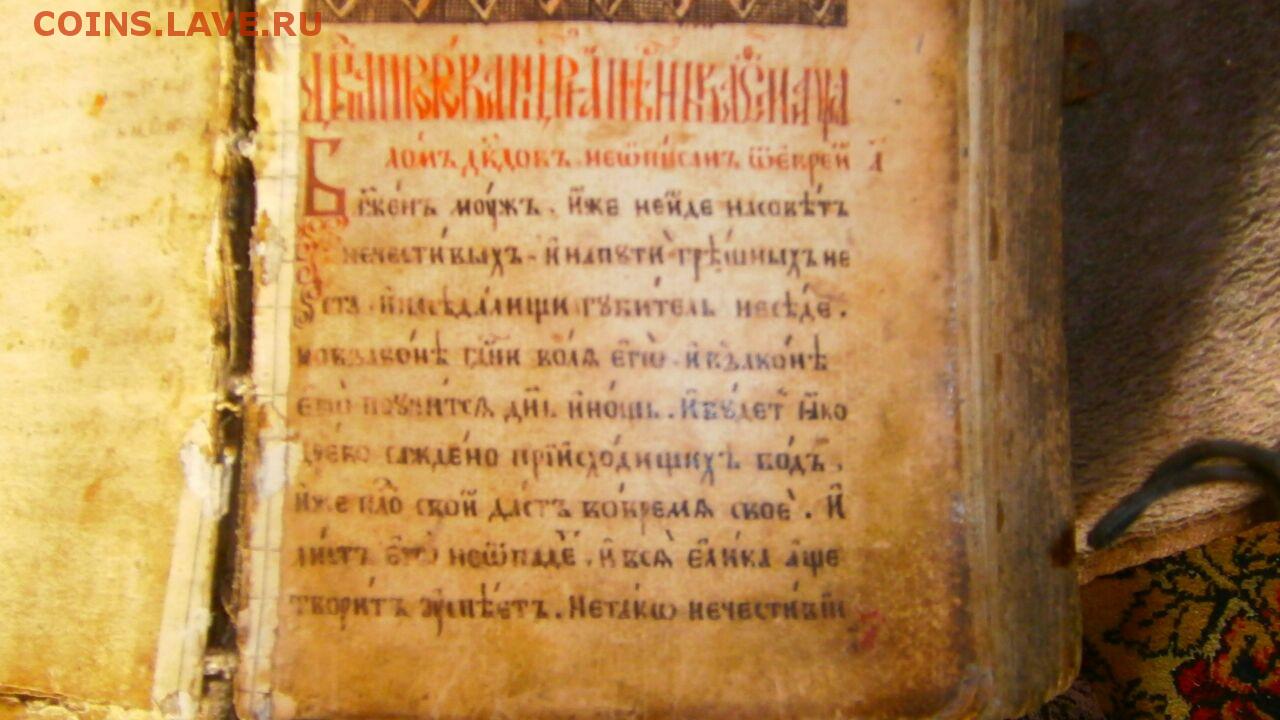 COINS.LAVE.RU
ломъ дв҃довъ. не ѿписанъ ѿ еврей а҃
Бл҃жéнъ моужъ. и҆́же не и́де на совѣ́тъ
нечести́выхъ. и҆ на пути̑ грѣ́шныхъ не
ста. и҆ на сѣда́лищи гꙋби́тель не сѣ́де.
но въ зако́нѣ гдⷭ҇ни во́лѧ е҆гѡ̀. и҆ въ зако́нѣ
е҆гѡ̀ поꙋчи́тсѧ дн҃ь и҆ но́щь. И҆ бꙋ́детъ ꙗ҆́ко
дре́во сажде́но при и҆схо́дищихъ во́дъ.
и҆́же пло́д сво́й да́стъ во вре́мѧ своѐ. И҆
ли́стъ е҆гѡ̀ не ѿпаде́. и҆ всѧ̀ е҆ли́ка а҆́ще
твори́тъ ᲂу҆спѣ́етъ. Не та́кѡ нечести́вїи